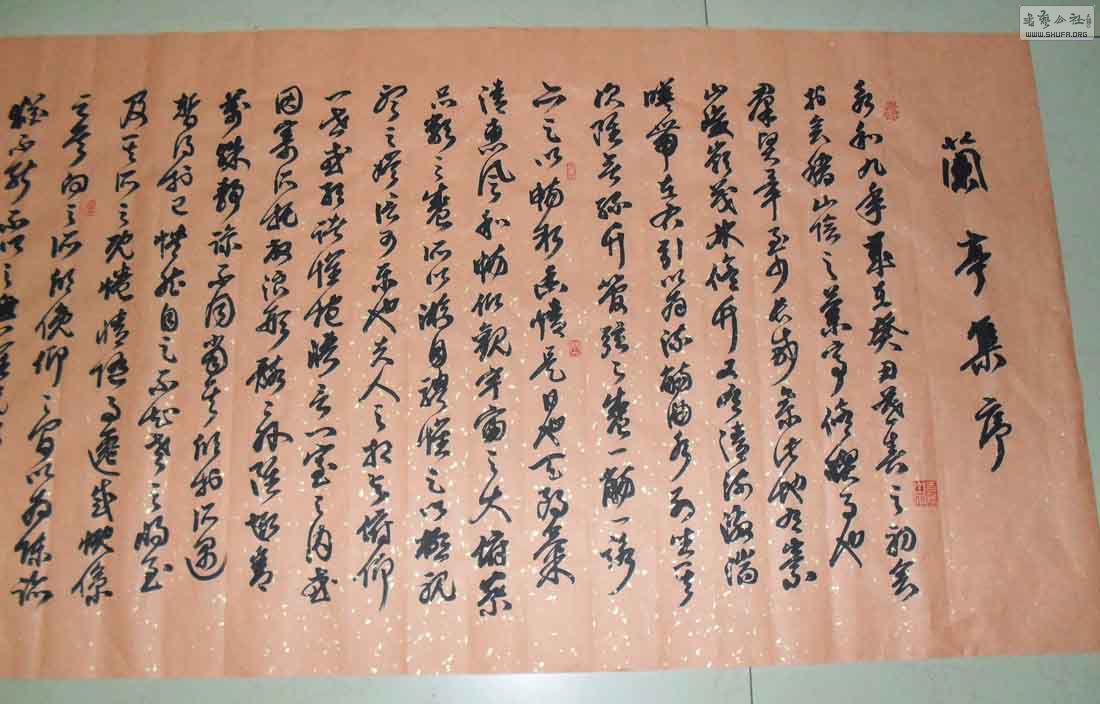 蘭亭集序
永和九年歲在癸丑暮春之初會
於會稽山陰之蘭亭修禊事也
群賢畢至少長咸集此地有崇
山峻嶺茂林修竹又有清流激湍
暎帶左右引以為流觴曲水列坐其
次雖無絲竹管弦之盛一觴一詠
亦足以暢敘幽情是日也天朗氣
清惠風和暢仰觀宇宙之大俯察
品類之盛所以遊目騁懷足以極視
聽之娛信可樂也夫人之相與俯仰
一世或取諸懷抱晤言一室之內或
因寄所託放浪形骸之外雖趣舍
萬殊靜躁不同當其欣於所遇
暫得於己怏然自足不知老之將至
及其所之既倦情隨事遷感慨係
之矣向之所欣俛仰之間以為陳跡
猶不能不以之興懷
書藝公社
WWW.SHUFA.ORG